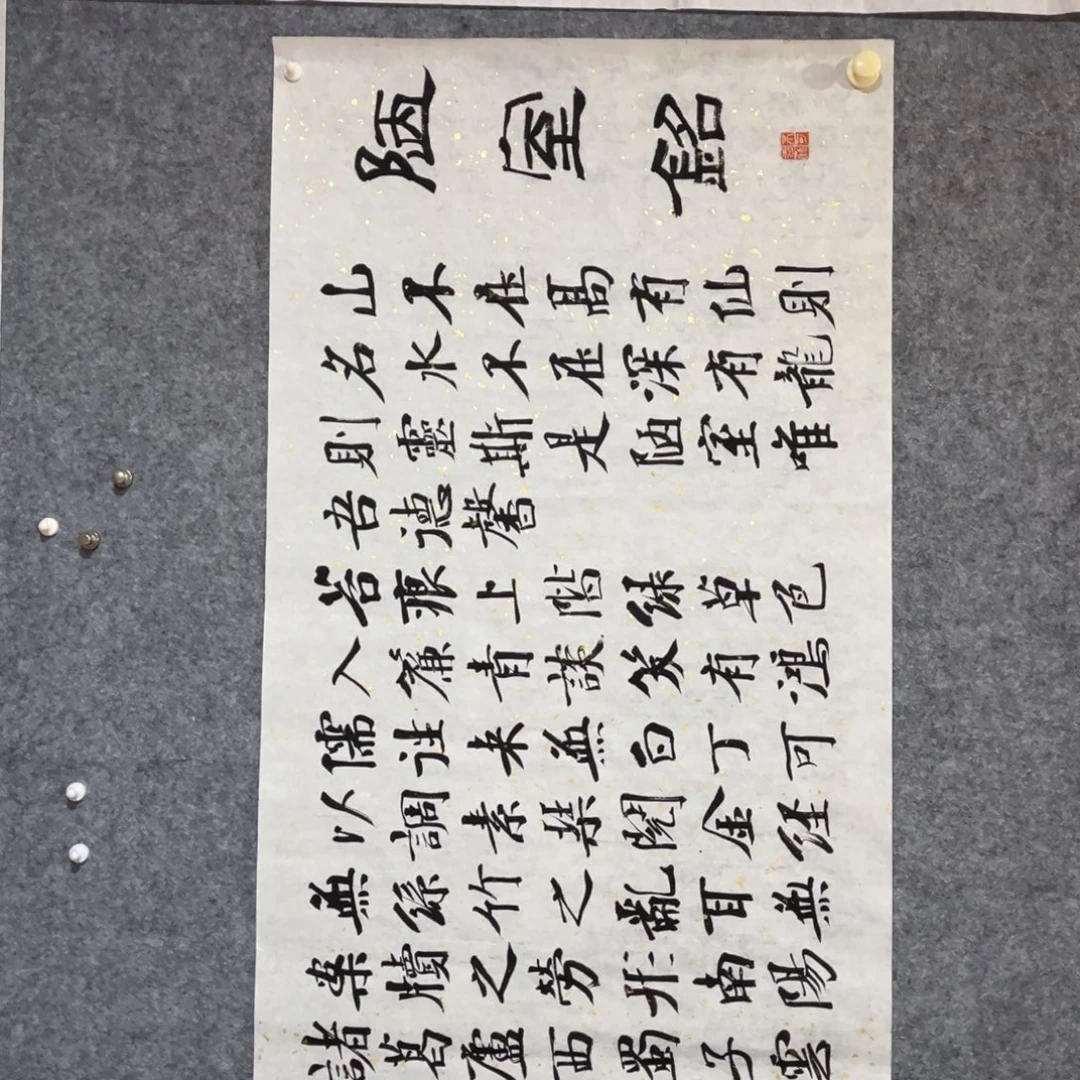 陋室銘
山不在高有仙則
名水不在深有龍
則靈斯是陋室唯
吾德馨
苔痕上階綠草色
入簾青談笑有鴻
儒往来無白丁可
以調素琴閱金經
無絲竹之亂耳無
案牘之勞形南陽
諸葛廬西蜀子雲